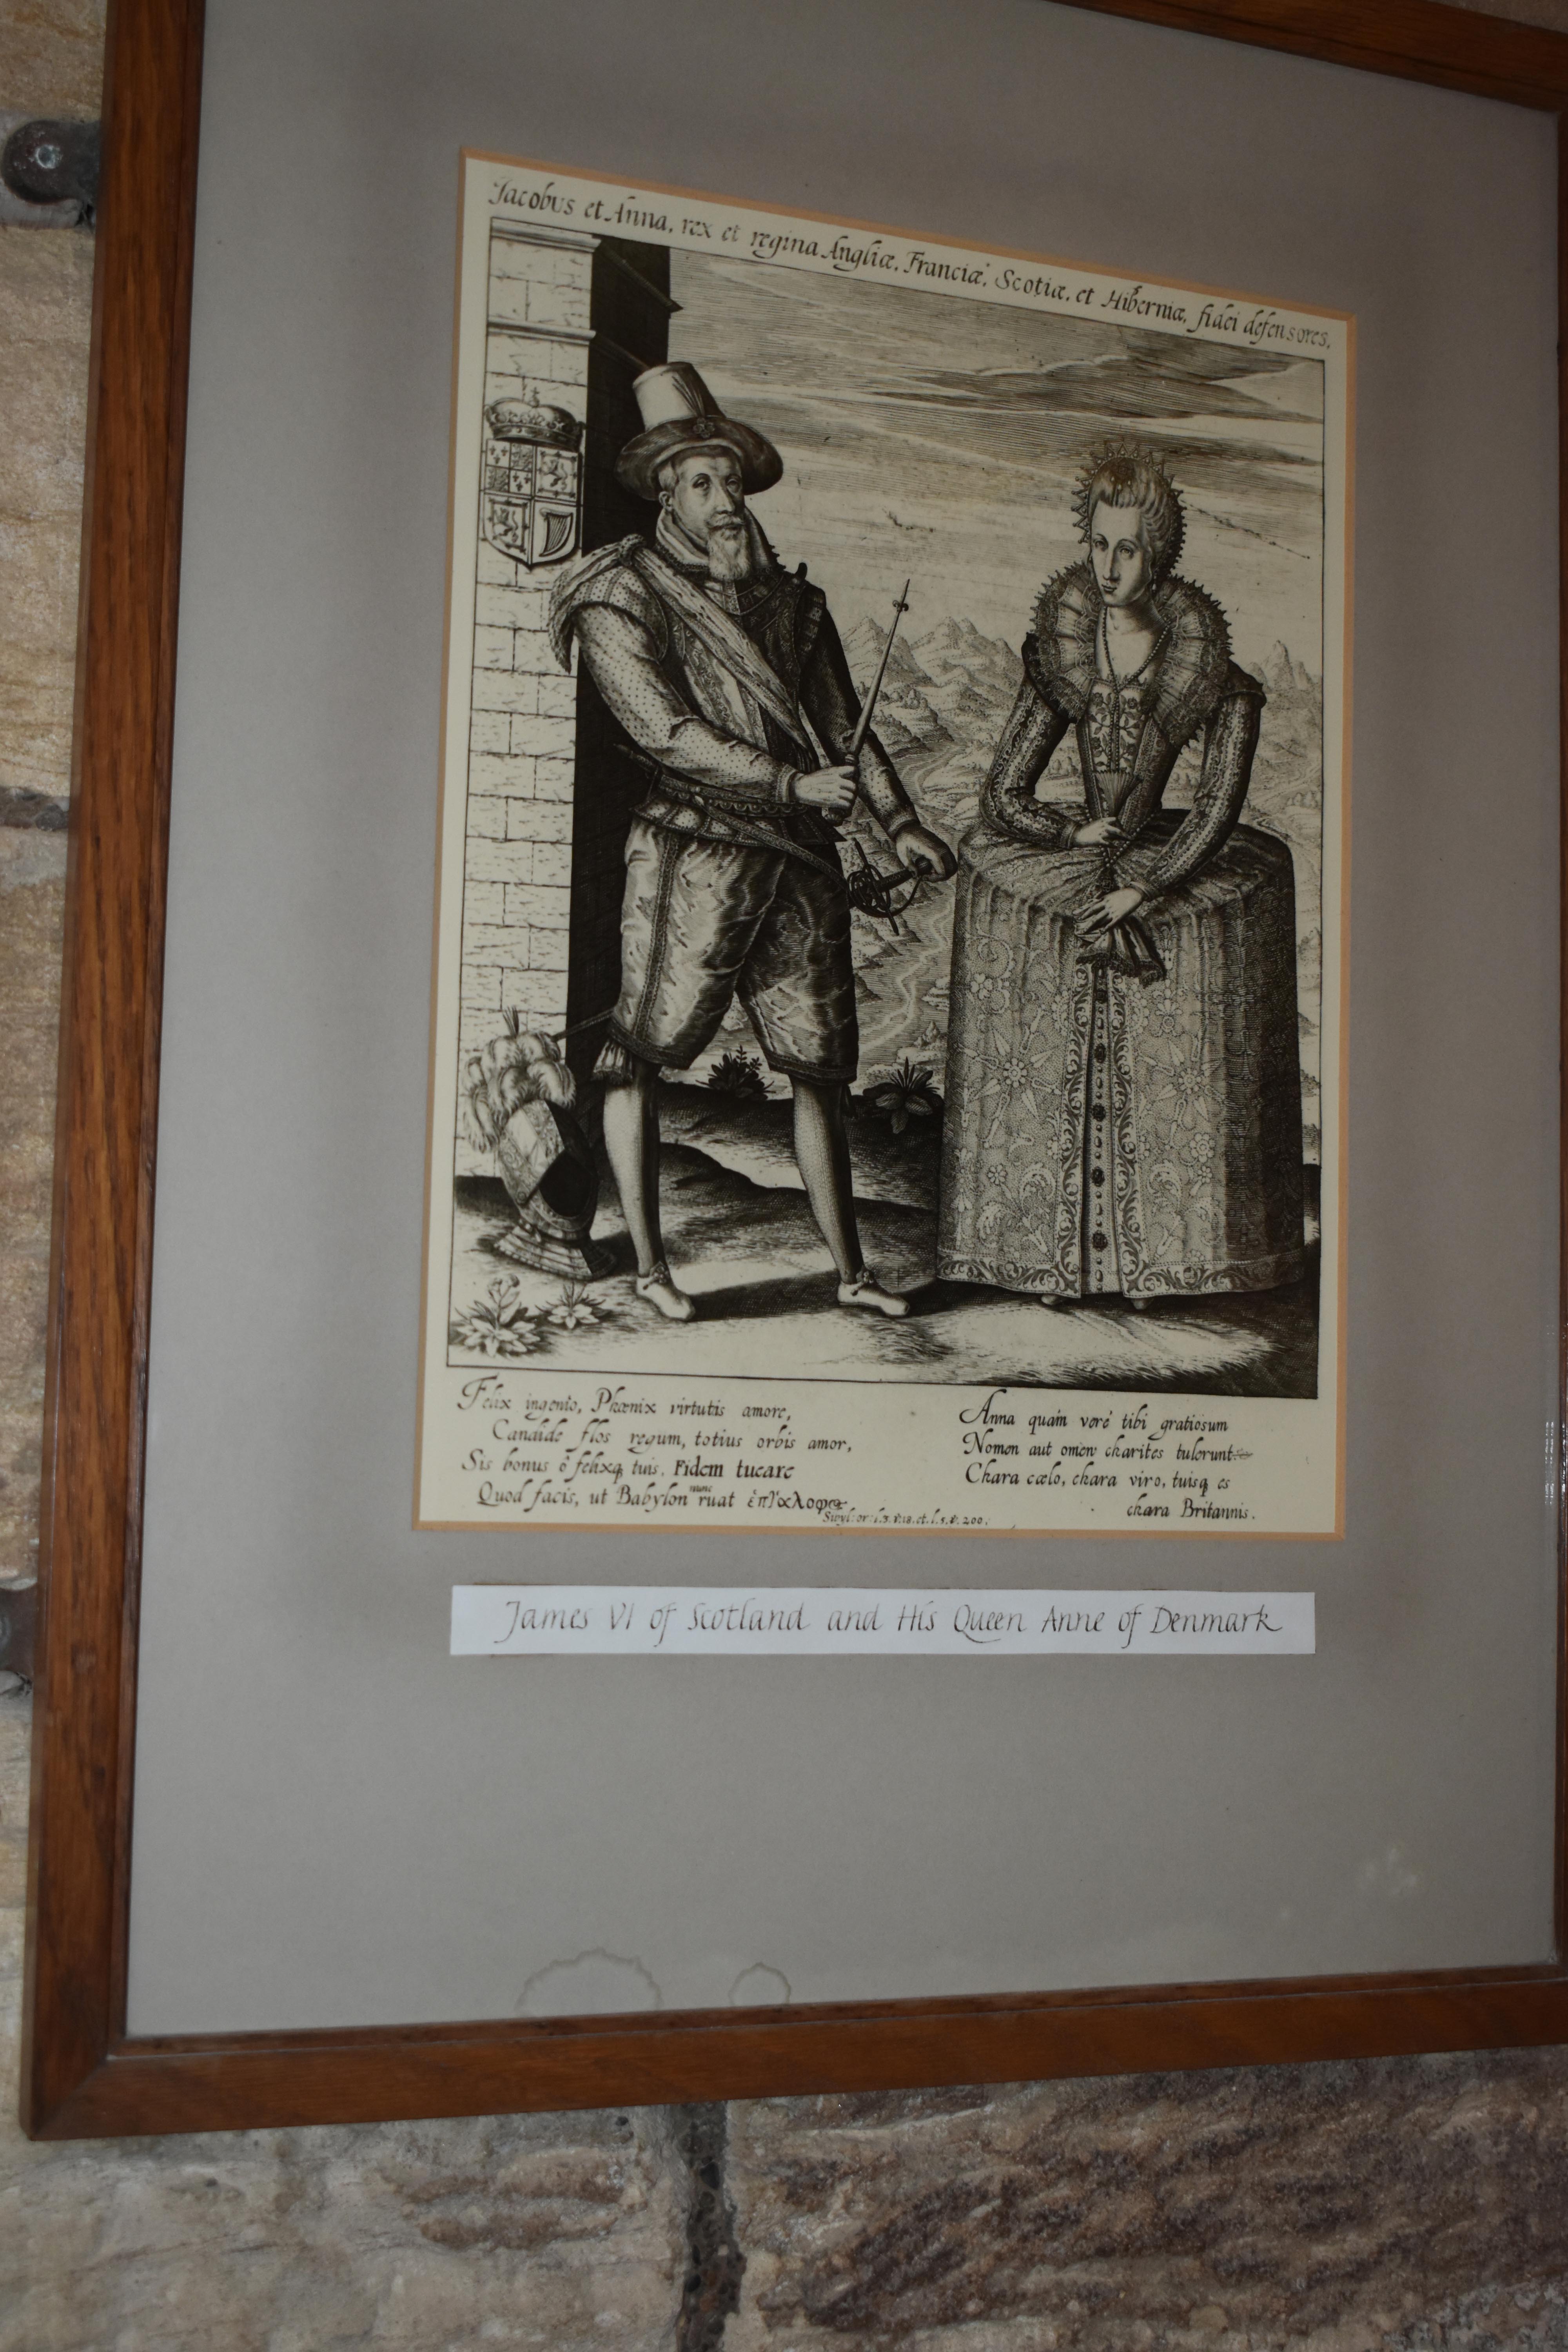 Jacobus et Anna, rex et regina Angliæ, Franciæ, Scotiæ, et Hiberniæ, fidei defensores.
Felix ingenio, Phœnix virtutis amore,
Candide flos regum, totius orbis amor,
Sis bonus ô felixq tuis. Fidem tueare
Quod facis, ut Babylon nunc ruat
Anna quàm verè tibi gratiosum
Nomen aut omen charites tulerunt
Chara cœlo, chara viro, tuisq es
chara Britannis.
James VI of Scotland and His Queen Anne of Denmark